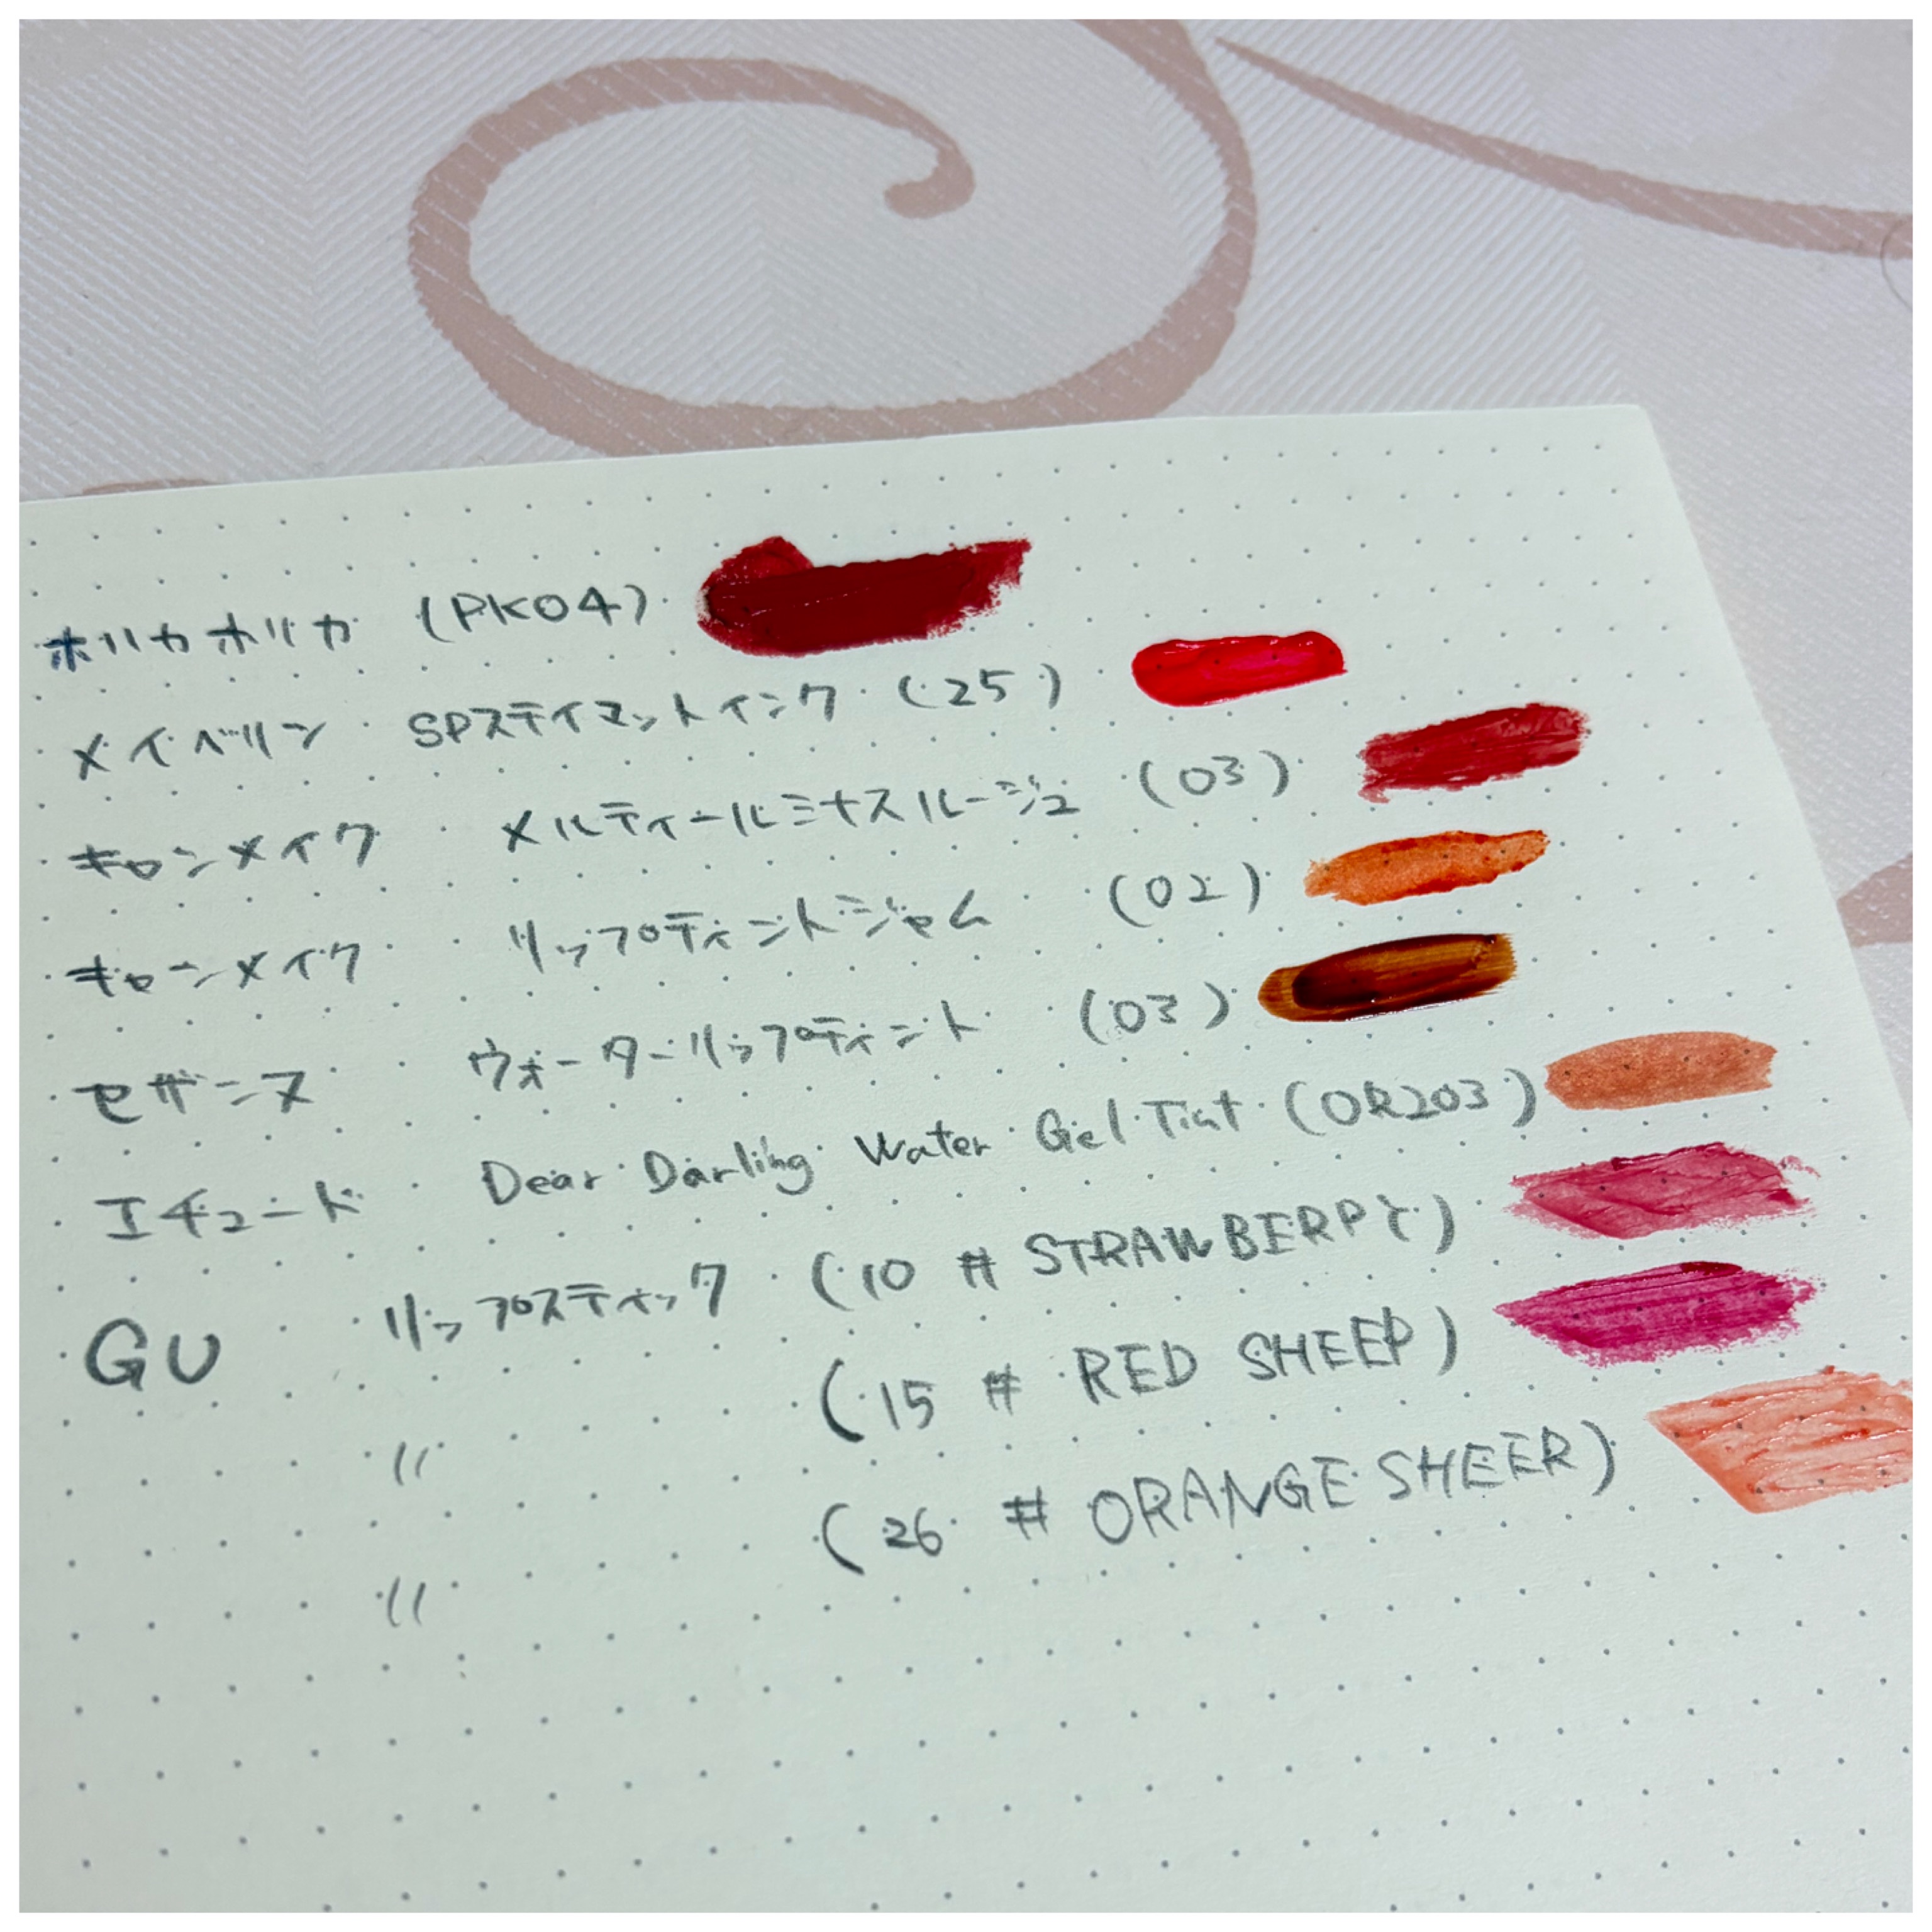 ホリカホリカ (PK04)
メイベリン SPステイマットインク (25)
キャンメイク メルティールミナスルージュ (03)
キャンメイク リップティントジャム (02)
セザンヌ ウォーターリップティント (03)
エチュード Dear Darling Water Gel Tint (OR203)
GU リップスティック (10 # STRAWBERRY)
〃 (15 # RED SHEER)
〃 (26 # ORANGE SHEER)